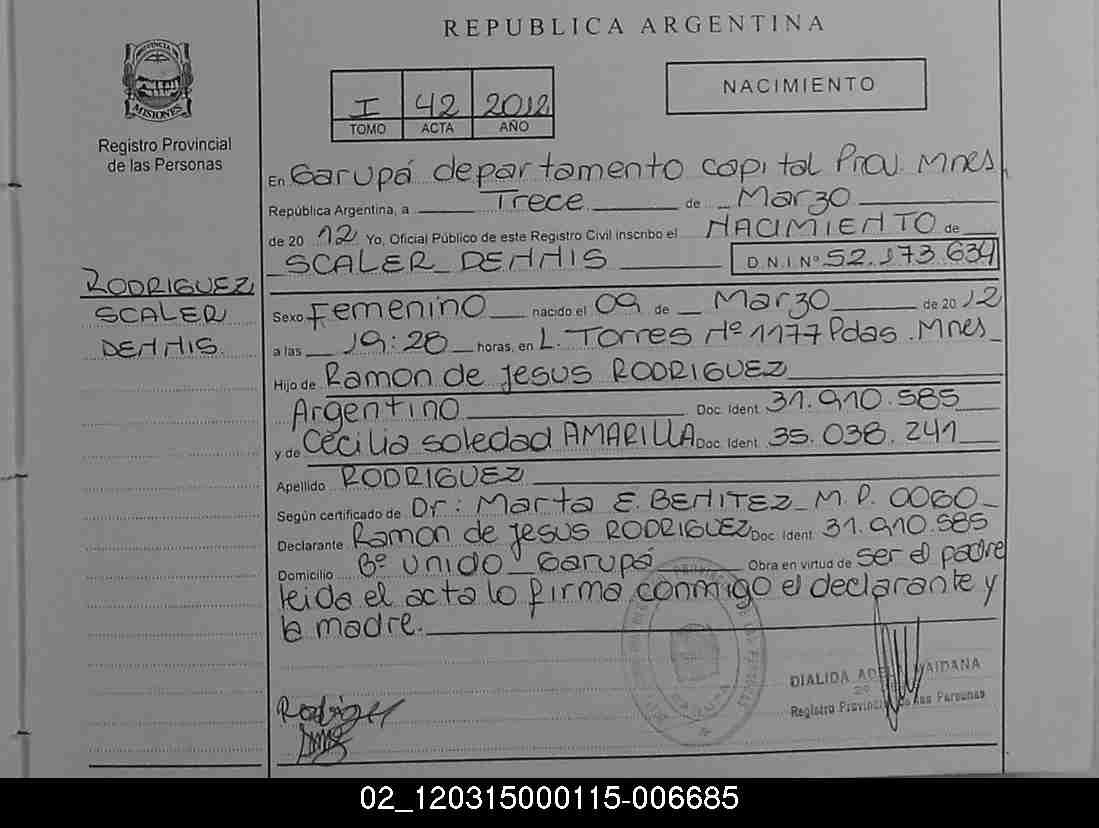 REPUBLICA ARGENTINA
PROVINCIA DE MISIONES
Registro Provincial
de las Personas
I 42 2012
TOMO ACTA AÑO
NACIMIENTO
En Garupá departamento capital Prov. Mnes
República Argentina, a Trece de Marzo
de 2012 Yo, Oficial Público de este Registro Civil inscribo el NACIMIENTO de
SCALER DENNIS D.N.I Nº 52.173.634
RODRIGUEZ
SCALER
DENNIS.
Sexo Femenino nacido el 09 de Marzo de 2012
a las 19:28 horas, en L. Torres Nº 1177 Pdas. Mnes
Hijo de Ramon de Jesus RODRIGUEZ
Argentino Doc. Ident. 31.910.585
y de Cecilia Soledad AMARILLA Doc. Ident. 35.038.241
Apellido RODRIGUEZ
Según certificado de Dr: Marta E. BENITEZ M.P. 0060
Declarante Ramon de Jesus RODRIGUEZ Doc. Ident. 31.910.585
Domicilio Bº Unido Garupá Obra en virtud de ser el padre
leida el acta lo firma conmigo el declarante y
la madre.
DIALIDA MAIDANA
Registro Provincial de las Personas
02_120315000115-006685